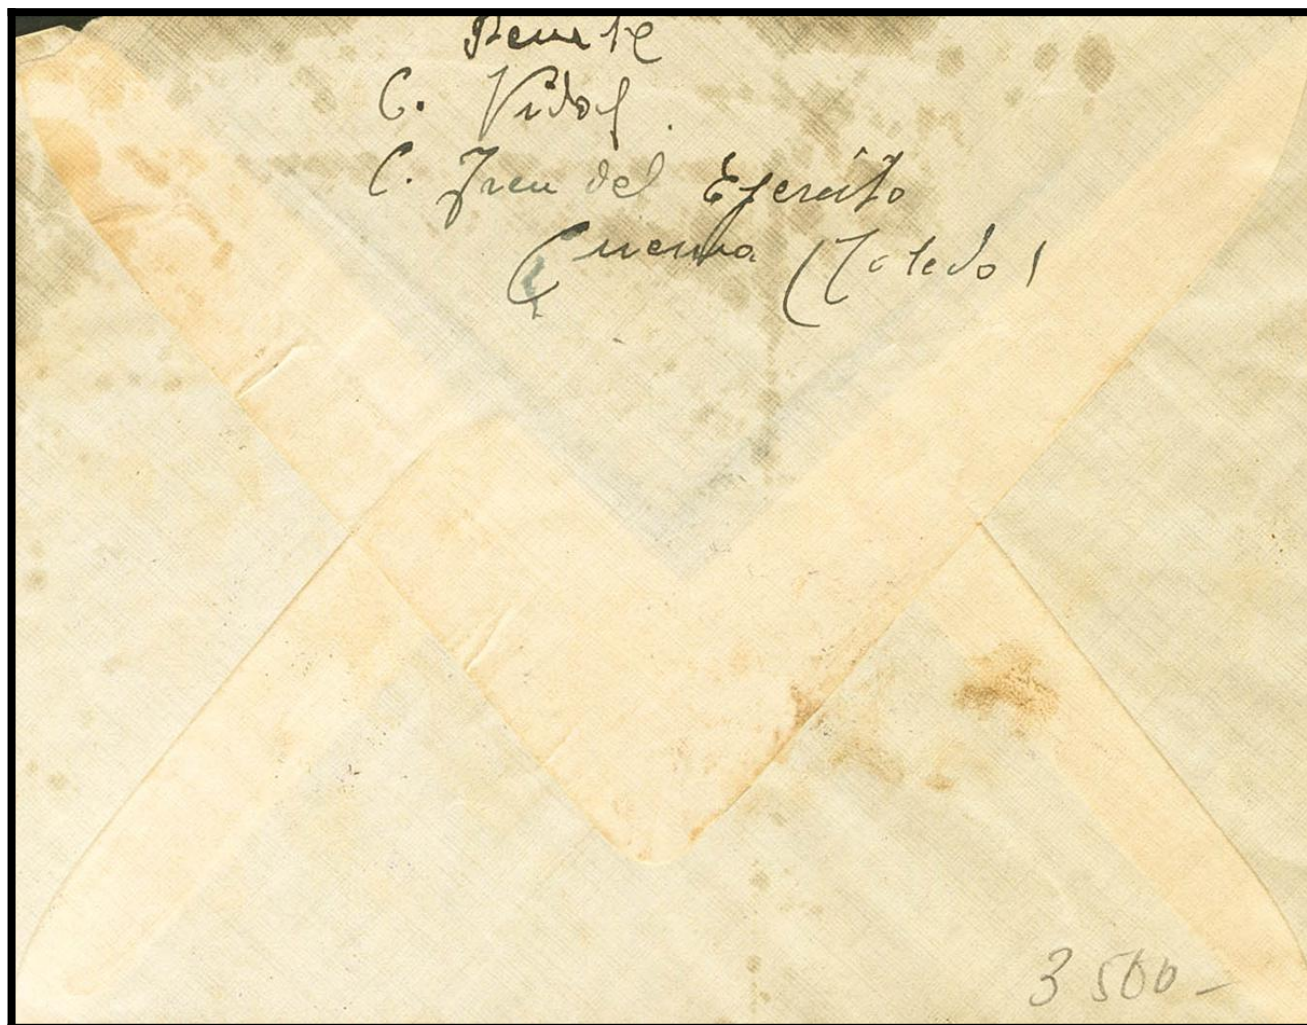 Remite
C. Vidal.
C. Tren del Ejercito
Cuerva (Toledo)
3 500-